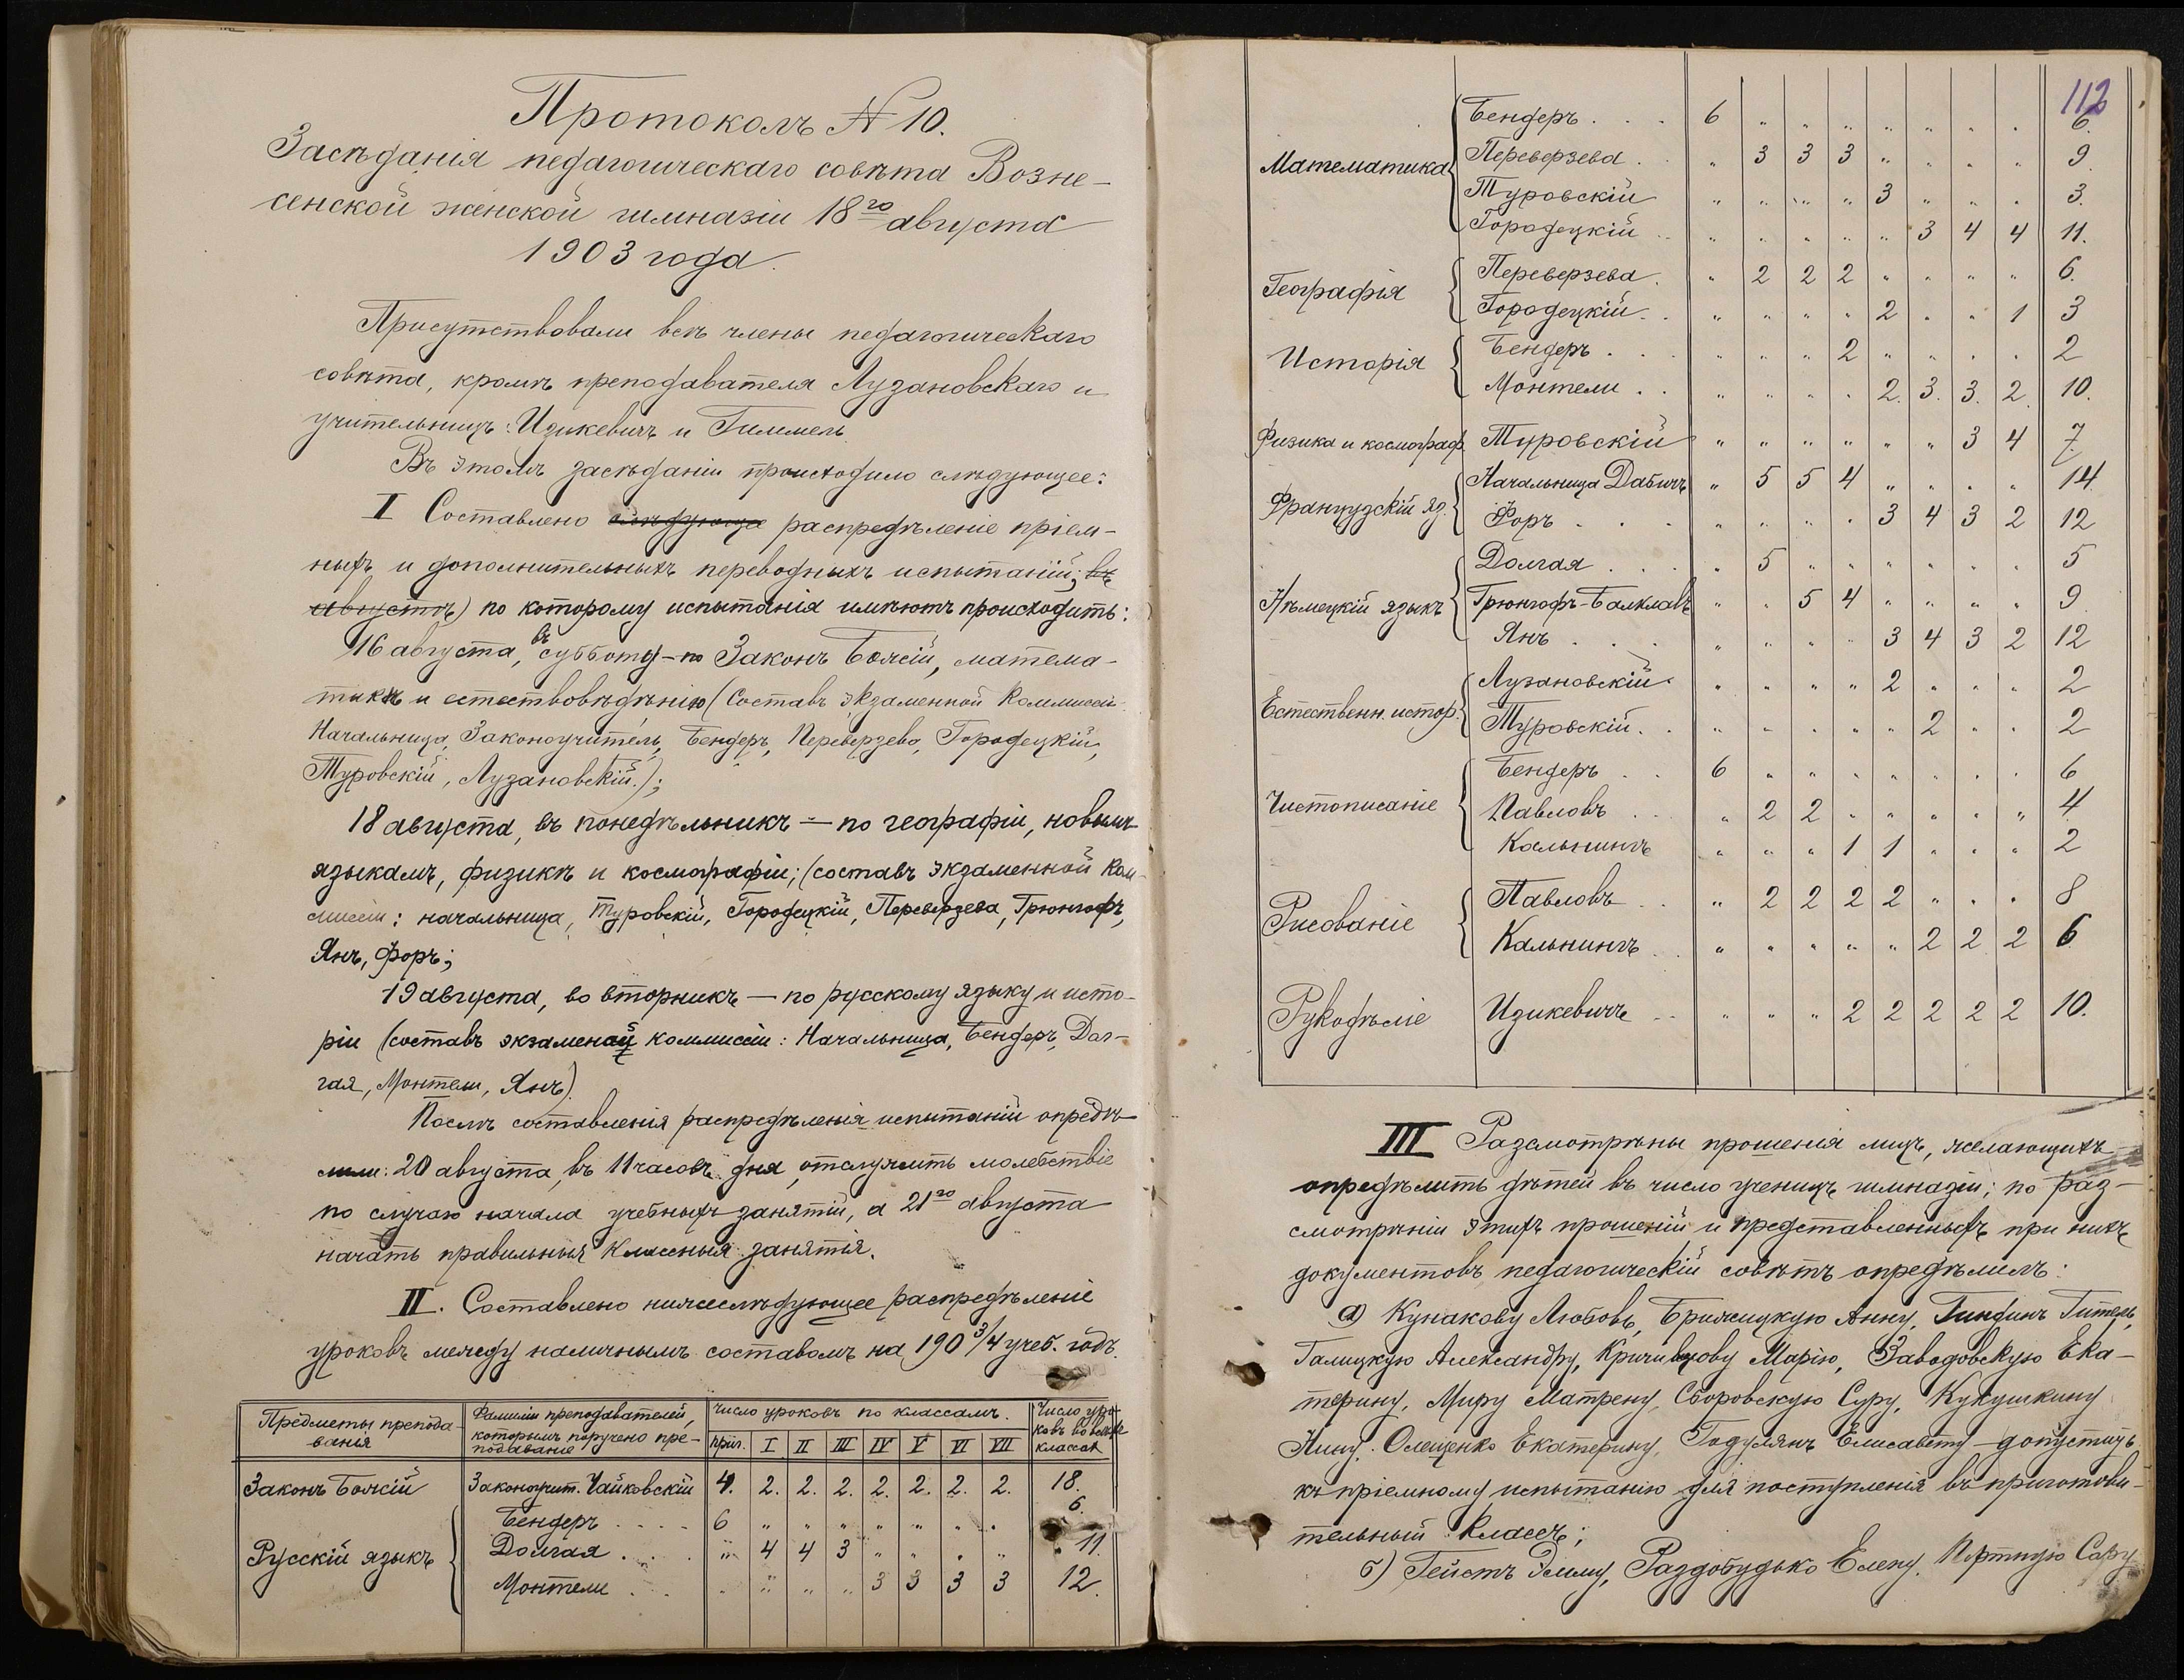 Протоколъ № 10.
Засѣданія педагогическаго совѣта Возне-
сенской женской гимназіи 18го августа
1903 года.
Присутствовали всѣ члены педагогическаго
совѣта, кромѣ преподавателя Лузановскаго и
учительницъ: Изикевичъ и Гиммель.
Въ этомъ засѣданіи происходило слѣдующее:
I Составлено слѣдующее распредѣленіе пріем-
ныхъ и дополнительныхъ переводныхъ испытаній; въ
августѣ) по которому испытанія имѣютъ происходить:
16 августа, въ субботу - по Законъ Божій, матема-
тикѣ и естествовѣдѣнію (Составъ экзаменной Коммиссіи:
Начальница, Законоучитель, Бендеръ, Переверзева, Городецкій,
Туровскій, Лузановскій.);
18 августа, въ понедѣльникъ — по географіи, новымъ
языкамъ, физикѣ и космографіи; (составъ экзаменной Ком-
миссіи: начальница, Туровскій, Городецкій, Переверзева, Грюнгофъ,
Янъ, Форъ;
19 августа, во вторникъ — по русскому языку и исто-
ріи (составъ экзаменной коммиссіи: Начальница, Бендеръ, Дол-
гая, Монтели, Янъ).
Послѣ составленія распредѣленія испытаній опредѣ-
лили: 20 августа, въ 11 часовъ дня, отслужить молебствіе
по случаю начала учебныхъ занятій, а 21го августа
начать правильныя классныя занятія.
II. Составлено нижеслѣдующее распредѣленіе
уроковъ между наличнымъ составомъ на 190 3/4 учеб. годъ.
Предметы препода-
ванія
Фамиліи преподавателей,
которымъ поручено пре-
подаваніе
Число уроковъ по классамъ.
Число уро-
ковъ во всѣхъ
классахъ
приг. I II III IV V VI VII
Законъ Божій Законоучит. Чайковскій 4. 2. 2. 2. 2. 2. 2. 2. 18.
Русскій языкъ
Бендеръ . . . . 6 „ „ „ „ „ „ „ 6.
Долгая . . . „ 4 4 3 „ „ „ „ 11.
Монтели . . . „ „ „ „ 3 3 3 3 12.
112
Математика
Бендеръ . . . 6 „ „ „ „ „ „ „ 6.
Переверзева . . „ 3 3 3 „ „ „ „ 9
Туровскій „ „ „ „ 3 „ „ „ 3.
Городецкій . . „ „ „ „ „ 3 4 4 11.
Географія
Переверзева . „ 2 2 2 „ „ „ „ 6.
Городецкій . . „ „ „ „ 2 „ „ 1 3
Исторія
Бендеръ . . . „ „ „ 2 „ „ „ „ 2
Монтели . . „ „ „ „ 2. 3. 3. 2. 10.
Физика и космограф. Туровскій „ „ „ „ „ „ 3 4 7.
Французскій яз.
Начальница Дабичъ „ 5 5 4 „ „ „ „ 14.
Форъ . . . „ „ „ „ 3 4 3 2 12
Нѣмецкій языкъ
Долгая . . . „ 5 „ „ „ „ „ „ 5
Грюнгофъ-Балклавъ „ „ 5 4 „ „ „ „ 9
Янъ . . . „ „ „ „ 3 4 3 2 12
Естественн. истор.
Лузановскій „ „ „ „ 2 „ „ „ 2
Туровскій . . „ „ „ „ „ 2 „ „ 2
Чистописаніе
Бендеръ . . 6 „ „ „ „ „ „ „ 6
Павловъ . . . „ 2 2 „ „ „ „ „ 4
Кальнингъ „ „ „ 1 1 „ „ „ 2
Рисованіе
Павловъ . . „ 2 2 2 2 „ „ „ 8
Кальнингъ . . „ „ „ „ „ 2 2 2 6
Рукодѣліе Изикевичъ . . „ „ „ 2 2 2 2 2 10.
III Разсмотрѣны прошенія лицъ, желающихъ
опредѣлить дѣтей въ число ученицъ гимназіи; по раз-
смотрѣніи этихъ прошеній и представленныхъ при нихъ
документовъ педагогическій совѣтъ опредѣлилъ:
а) Кунакову Любовь, Бряжицкую Анну, Гиндинъ Гитель,
Галицкую Александру, Кричивцову Марію, Заводовскую Ека-
терину, Миру Матрену, Сборовскую Суру, Кукушкину
Нину, Олещенко Екатерину, Годулянъ Елисавету — допустить
къ пріемному испытанію для поступленія въ приготови-
тельный классъ;
б) Гейстъ Эмму, Раздобудько Елену, Портную Сару